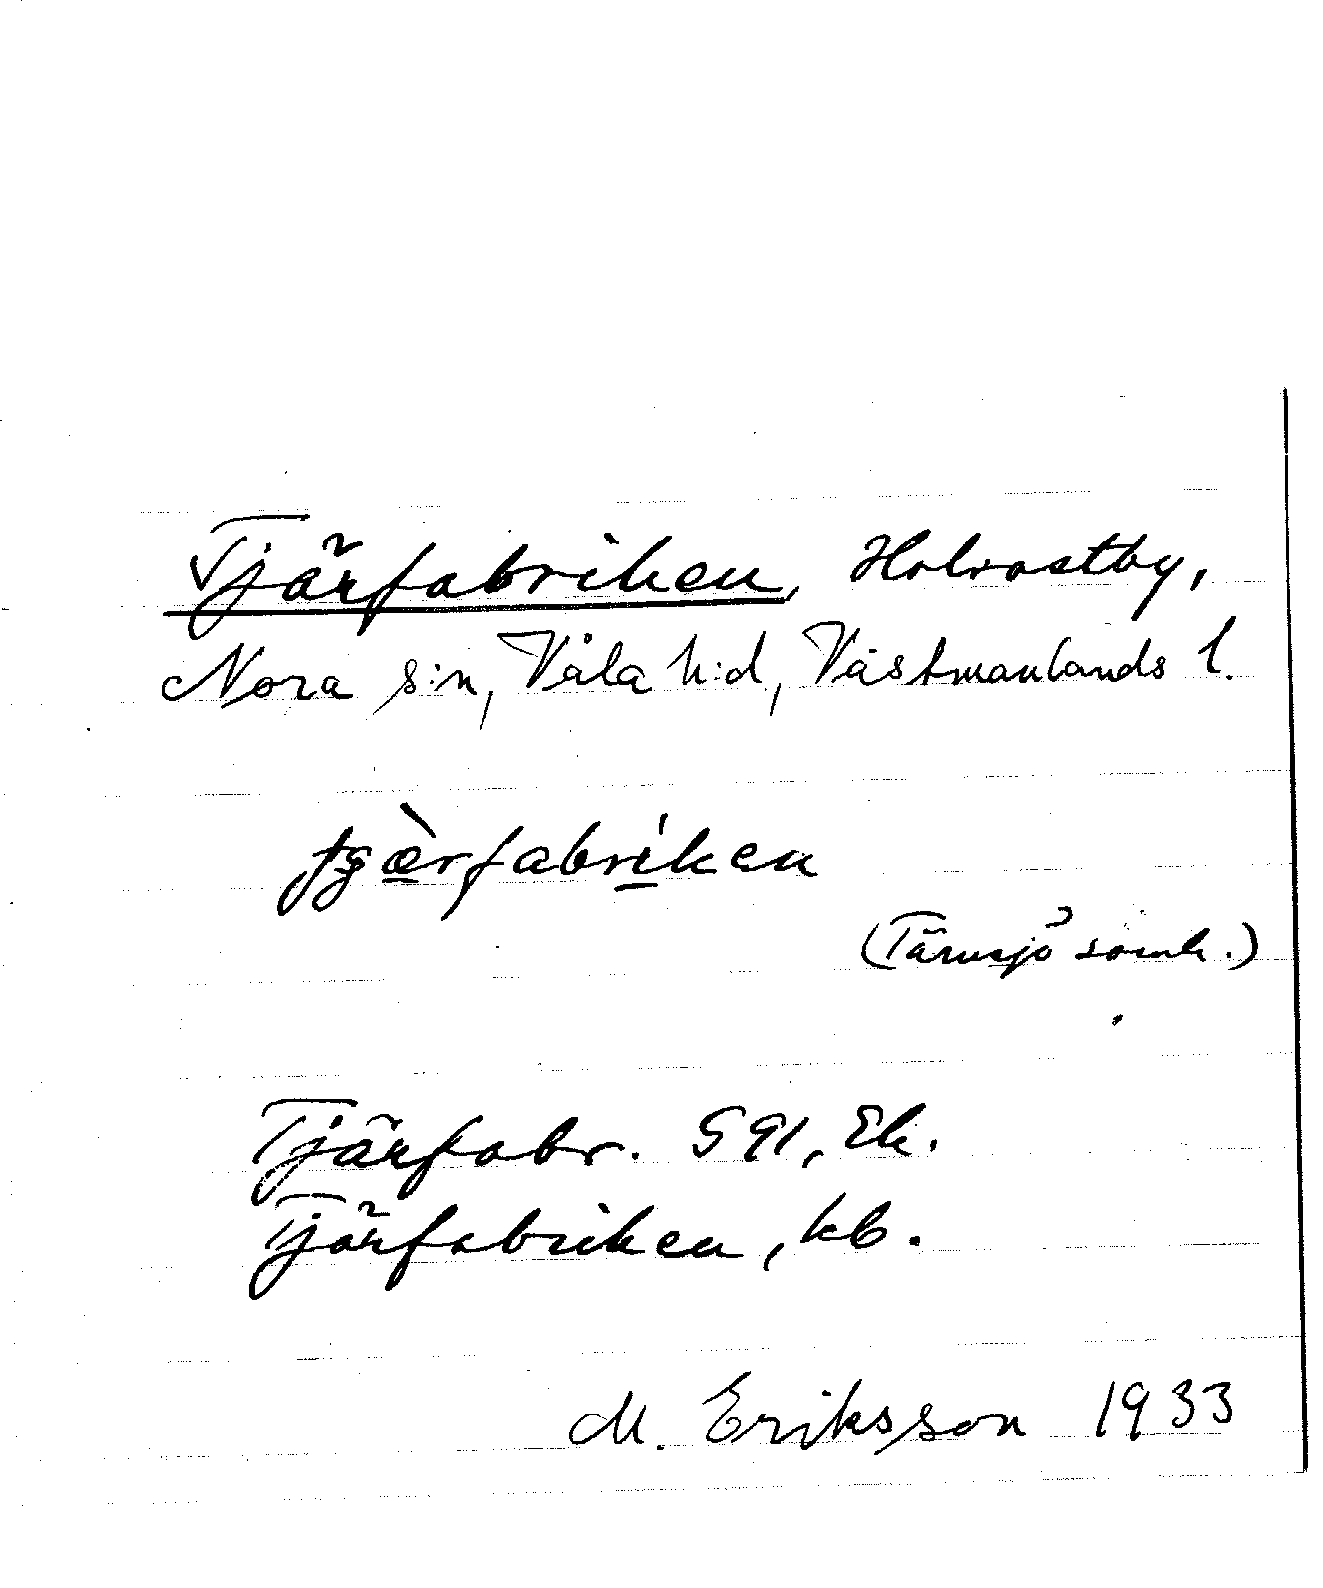 Tjärfabriken, Holvastby,
Nora s:n, Våla h:d, Västmanlands l.
tjæ̀rfabríken
(Tärnsjö samh.)
Tjärfabr. G 91, Ek.
Tjärfabriken, kb.
M. Eriksson 1933